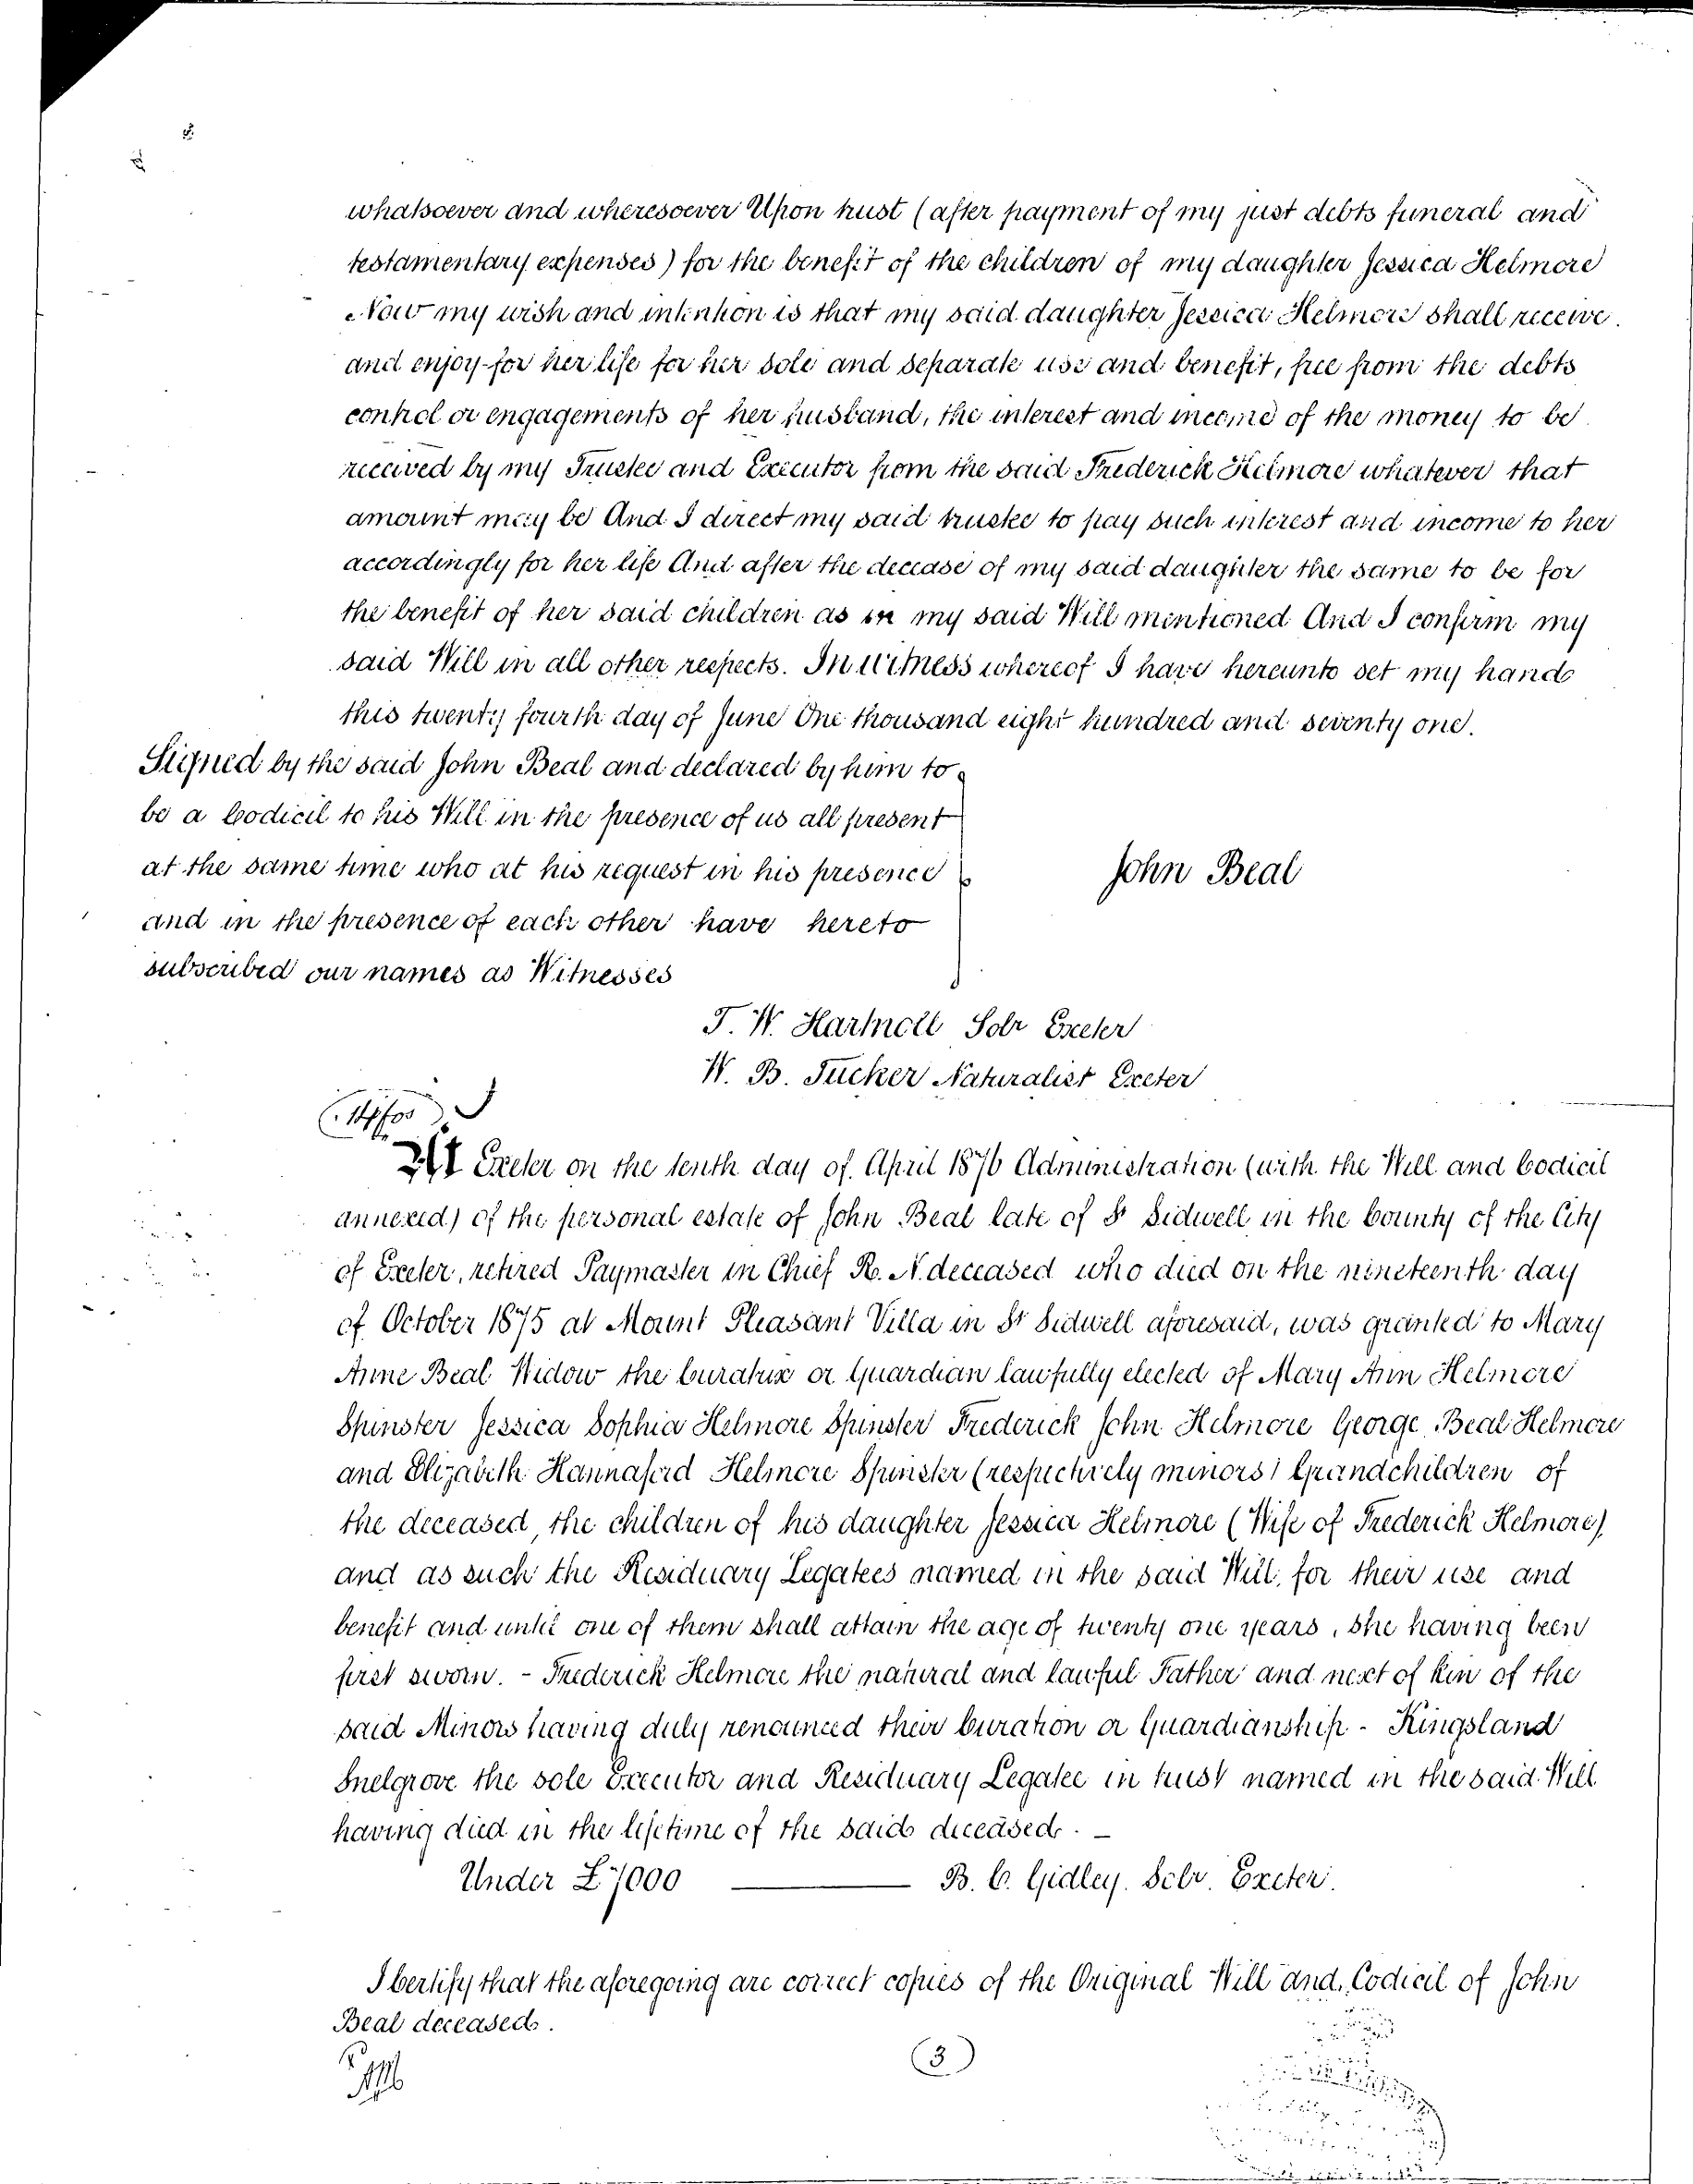 whatsoever and wheresoever Upon trust (after payment of my just debts funeral and
testamentary expenses) for the benefit of the children of my daughter Jessica Helmore
Now my wish and intention is that my said daughter Jessica Helmore shall receive
and enjoy for her life for her sole and separate use and benefit, free from the debts
control or engagements of her husband, the interest and income of the money to be
received by my Trustee and Executor from the said Frederick Helmore whatever that
amount may be And I direct my said trustee to pay such interest and income to her
accordingly for her life And after the decease of my said daughter the same to be for
the benefit of her said children as in my said Will mentioned And I confirm my
said Will in all other respects. In witness whereof I have hereunto set my hand
this twenty fourth day of June One thousand eight hundred and seventy one.
Signed by the said John Beal and declared by him to
be a Codicil to his Will in the presence of us all present
at the same time who at his request in his presence
John Beal
and in the presence of each other have hereto
subscribed our names as Witnesses
T. W. Hartnoll Solr Exeter
W. B. Tucker Naturalist Exeter
At Exeter on the tenth day of April 1876 Administration (with the Will and Codicil
annexed) of the personal estate of John Beal late of St Sidwell in the County of the City
of Exeter, retired Paymaster in Chief R. N. deceased who died on the nineteenth day
of October 1875 at Mount Pleasant Villa in St Sidwell aforesaid, was granted to Mary
Anne Beal Widow the Curatrix or Guardian lawfully elected of Mary Ann Helmore
Spinster Jessica Sophia Helmore Spinster Frederick John Helmore George Beal Helmore
and Elizabeth Hannaford Helmore Spinster (respectively minors) Grandchildren of
the deceased, the children of his daughter Jessica Helmore (Wife of Frederick Helmore)
and as such the Residuary Legatees named in the said Will, for their use and
benefit and until one of them shall attain the age of twenty one years, she having been
first sworn. - Frederick Helmore the natural and lawful Father and next of kin of the
said Minors having duly renounced their Curation or Guardianship - Kingsland
Snelgrove the sole Executor and Residuary Legatee in trust named in the said Will
having died in the lifetime of the said deceased. -
Under £7000 — B. C. Gidley. Solr. Exeter.
I Certify that the aforegoing are correct copies of the Original Will and Codicil of John
Beal deceased.
(3)